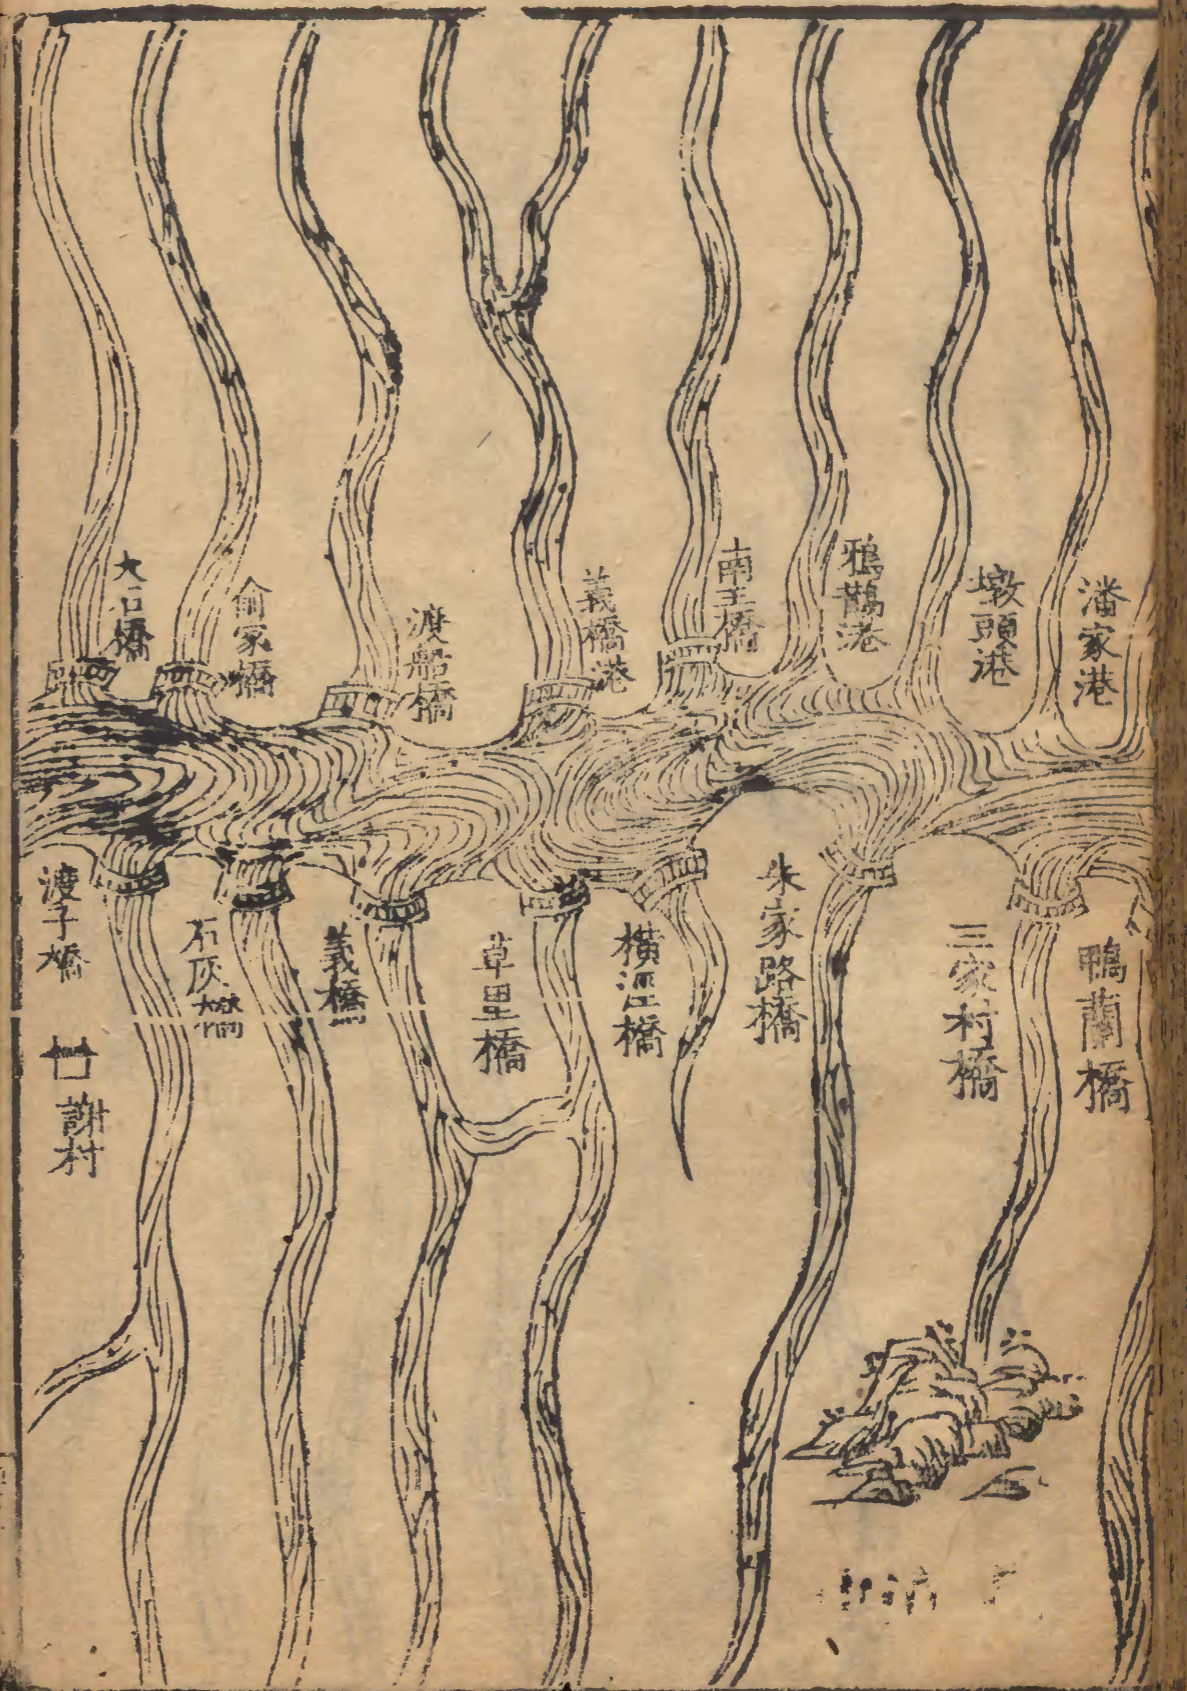 潘家港
墩頭港
鴉鵲港
南王橋
義橋港
渡船橋
俞家橋
大石橋
鴨蘭橋
三家村橋
朱家路橋
橫涇橋
草里橋
義橋
石灰橋
渡子橋
謝村